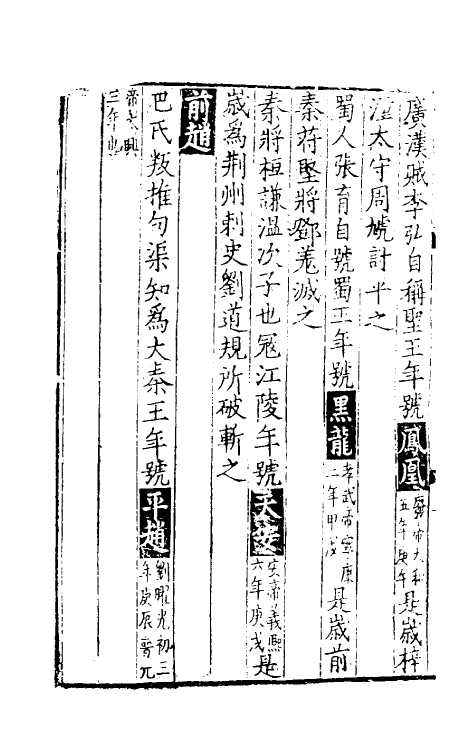 廣漢贼李弘自稱聖王年號鳳凰廢帝大和五年庚午是歲梓
潼太守周虓討平之
蜀人張育自號蜀王年號黑龍孝武帝寧康二年甲戌是歲前
秦苻堅將鄧羌滅之
秦將桓謙溫次子也冦江陵年號天安帝義熙六年庚戌是
歲為荆州刺史劉道規所破斬之
前趙
巴氏叛推句渠知為大秦王年號平趙劉曜光初三年庚辰晉元
帝大興三年也